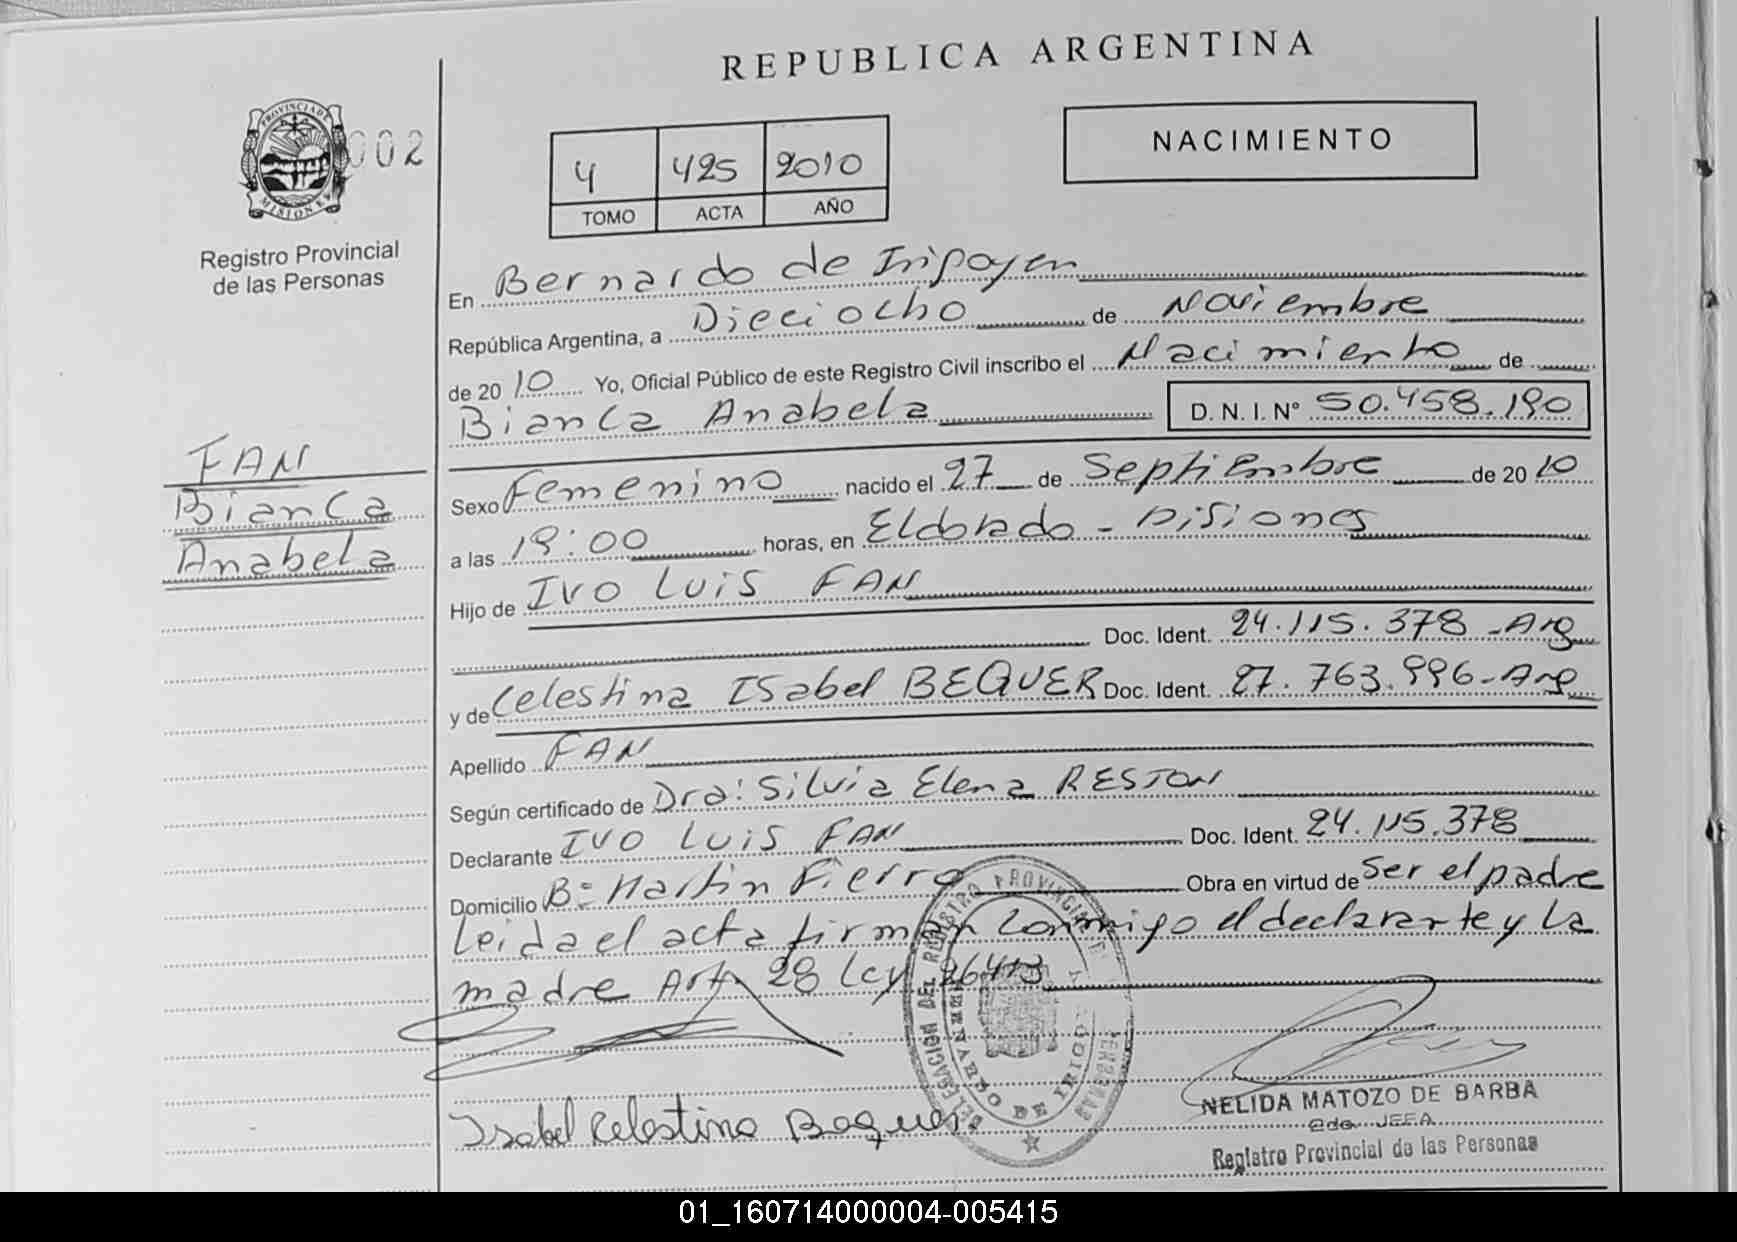 REPUBLICA ARGENTINA
PROVINCIA DE MISIONES
002
Registro Provincial
de las Personas
4 425 2010
TOMO ACTA AÑO
NACIMIENTO
En Bernardo de Iripoyen
República Argentina, a Dieciocho de Noviembre
de 2010 Yo, Oficial Público de este Registro Civil inscribo el Nacimiento de
Bianca Anabela D. N. I. N° 50.458.190
FAN
Bianca
Anabela
Sexo Femenino nacido el 27 de Septiembre de 2010
a las 19:00 horas, en Eldorado - Misiones
Hijo de IVO LUIS FAN
Doc. Ident. 24.115.378 - Arg
y de Celestina ISabel BEQUER Doc. Ident. 27.763.996 - Arg
Apellido FAN
Según certificado de Dra: Silvia Elena RESTON
Declarante IVO LUIS FAN Doc. Ident. 24.115.378
Domicilio B= Martin Fierro Obra en virtud de Ser el padre
Leida el acta firman conmigo el declarante y la
madre Art. 28 Ley 26413
DELEGACION DEL REGISTRO PROVINCIAL DE LAS PERSONAS
BERNARDO DE IRIGOYEN
Isabel Celestina Bequer
NELIDA MATOZO DE BARBA
JEFA
Registro Provincial de las Personas
01_160714000004-005415